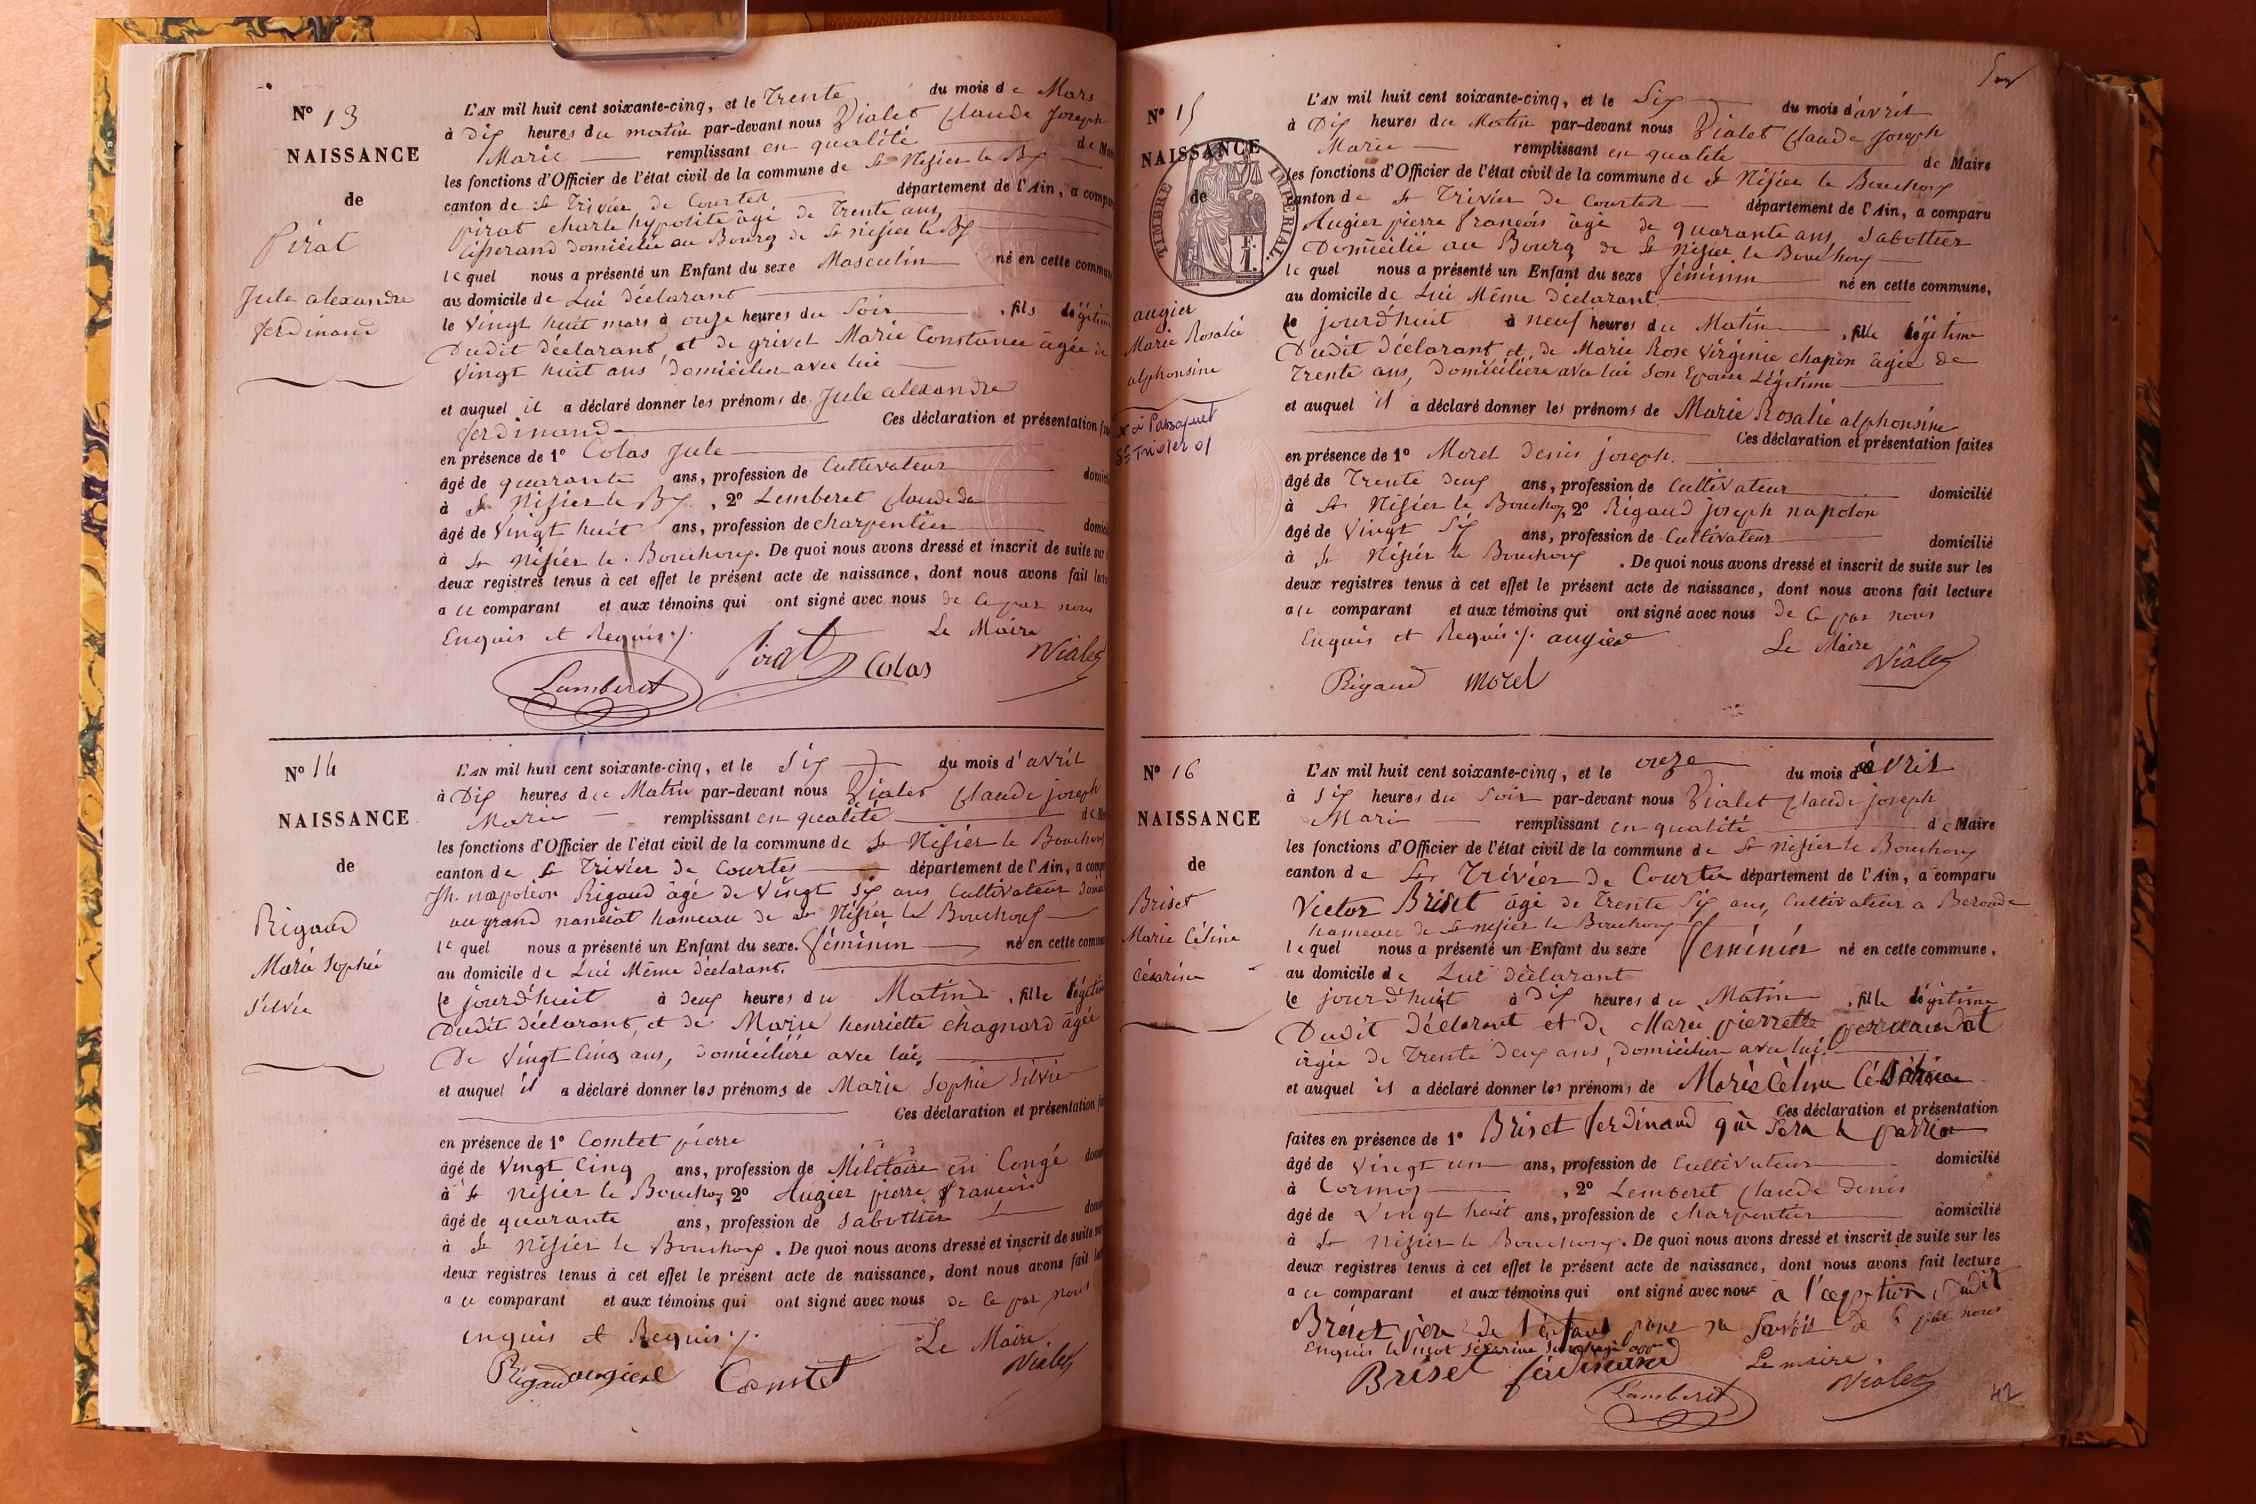 N° 13
NAISSANCE
de
Pirat
Jule alexandre
ferdinand
L'AN mil huit cent soixante-cinq, et le Trente du mois de Mars
à Dix heures du matin par-devant nous Vialet Claude Joseph
Marie remplissant en qualité de
les fonctions d'Officier de l'état civil de la commune de St Nisier le Bx
canton de St Trivier de Courtes département de l'Ain, a compa
pirat charle hypolite âgé de Trente ans,
tisserand domicilié au Bourg de St nisier le Bx
lequel nous a présenté un Enfant du sexe Masculin né en cette commune
au domicile de Lui déclarant
le Vingt huit mars à onze heures du Soir, fils légitime
Dudit déclarant, et de grivet Marie Constance âgée de
Vingt huit ans domicilier avec lui
et auquel il a déclaré donner les prénoms de Jule alexandre
ferdinand Ces déclaration et présentation
en présence de 1° Colas Jule
âgé de quarante ans, profession de Cultivateur
à St Nisier le Bx, 2° Lemberet Claude de
âgé de Vingt huit ans, profession de charpentier
à St Nisier le Bouchoux. De quoi nous avons dressé et inscrit de suite sur
deux registres tenus à cet effet le présent acte de naissance, dont nous avons fait
a ce comparant et aux témoins qui ont signé avec nous de ce par nous
Enquis et Requis ./.
Le Maire
Pirat Colas Vialet
Lamberet
N° 14
NAISSANCE
de
Rigaud
Marie Sophie
Silvie
L'AN mil huit cent soixante-cinq, et le Six du mois d'avril
à Dix heures du Matin par-devant nous Vialet Claude joseph
Marie remplissant en qualité de
les fonctions d'Officier de l'état civil de la commune de St Nisier le Bouchoux
canton de St Trivier de Courtes département de l'Ain, a comp
Jh. napoléon Rigaud âgé de Vingt Six ans Cultivateur
au grand nanciat hameau de St Nisier le Bouchoux
lequel nous a présenté un Enfant du sexe féminin né en cette commune
au domicile de Lui Même déclarant.
le jourd'huit à deux heures du Matin, fille légitime
Dudit déclarant, et de Marie henriette chagnard âgée
De Vingt Cinq ans, domicilière avec lui,
et auquel il a déclaré donner les prénoms de Marie Sophie Silvie
Ces déclaration et présentation
en présence de 1° Comtet pierre
âgé de Vingt Cinq ans, profession de Militaire en Congé
à St Nisier le Bouchoux 2° Augier pierre francois
âgé de quarante ans, profession de Sabottier
à St Nisier le Bouchoux. De quoi nous avons dressé et inscrit de suite
deux registres tenus à cet effet le présent acte de naissance, dont nous avons fait
a ce comparant et aux témoins qui ont signé avec nous de ce par nous
enquis et Requis ./.
Le Maire
Rigaud augier Comtet Vialet
N° 15
NAISSANCE
de
TIMBRE IMPERIAL.
augier
Marie Rosalie
alphonsine
+ à Passaquet
St Trivier 01
L'AN mil huit cent soixante-cinq, et le Six du mois d'avril
à Dix heures du Matin par-devant nous Vialet Claude Joseph
Marie remplissant en qualité de Maire
les fonctions d'Officier de l'état civil de la commune de St Nisier le Bouchoux
canton de St Trivier de Courtes département de l'Ain, a comparu
Augier pierre françois âgé de quarante ans, Sabottier
Domicilié au Bourg de St Nisier le Bouchoux
lequel nous a présenté un Enfant du sexe féminin né en cette commune,
au domicile de Lui Même déclarant.
le jourd'huit à neuf heures du Matin, fille légitime
Dudit déclarant et de Marie Rose Virginie chapon âgée de
Trente ans, domicilière avec lui Son Epouse Légitime
et auquel il a déclaré donner les prénoms de Marie Rosalie alphonsine
Ces déclaration et présentation faites
en présence de 1° Morel denis joseph.
âgé de Trente deux ans, profession de Cultivateur domicilié
à St Nisier le Bouchoux, 2° Rigaud joseph napoléon
âgé de Vingt Six ans, profession de Cultivateur domicilié
à St Nisier le Bouchoux. De quoi nous avons dressé et inscrit de suite sur les
deux registres tenus à cet effet le présent acte de naissance, dont nous avons fait lecture
a ce comparant et aux témoins qui ont signé avec nous de ce par nous
Enquis et Requis ./. augier
Le Maire
Rigaud morel Vialet
N° 16
NAISSANCE
de
Briset
Marie Céline
Césarine
L'AN mil huit cent soixante-cinq, et le onze du mois d'avril
à Six heures du Soir par-devant nous Vialet Claude joseph
Mari remplissant en qualité de Maire
les fonctions d'Officier de l'état civil de la commune de St nisier le Bouchoux
canton de St Trivier de Courtes département de l'Ain, a comparu
Victor Briset âgé de Trente Six ans, Cultivateur a Beronde
hameau de St nisier le Bouchoux
lequel nous a présenté un Enfant du sexe féminin né en cette commune,
au domicile de Lui déclarant
le jourd'huit à Dix heures du Matin, fille légitime
Dudit déclarant et de Marie pierrette
âgée de Trente deux ans, domicilier avec lui.
et auquel il a déclaré donner les prénoms de Marie Céline Césarine
Ces déclaration et présentation
faites en présence de 1° Briset ferdinand qui sera le parrin
âgé de Vingt un ans, profession de Cultivateur domicilié
à Cormoz, 2° Lemberet Claude denis
âgé de Vingt huit ans, profession de charpentier domicilié
à St Nisier le Bouchoux. De quoi nous avons dressé et inscrit de suite sur les
deux registres tenus à cet effet le présent acte de naissance, dont nous avons fait lecture
a ce comparant et aux témoins qui ont signé avec nous à l'exception dudit
Briset père de l'enfant pour ne Savoir de ce par nous
Enquis le mot Césarine
Le maire.
Briset férdinand Vialet
Lamberet
42